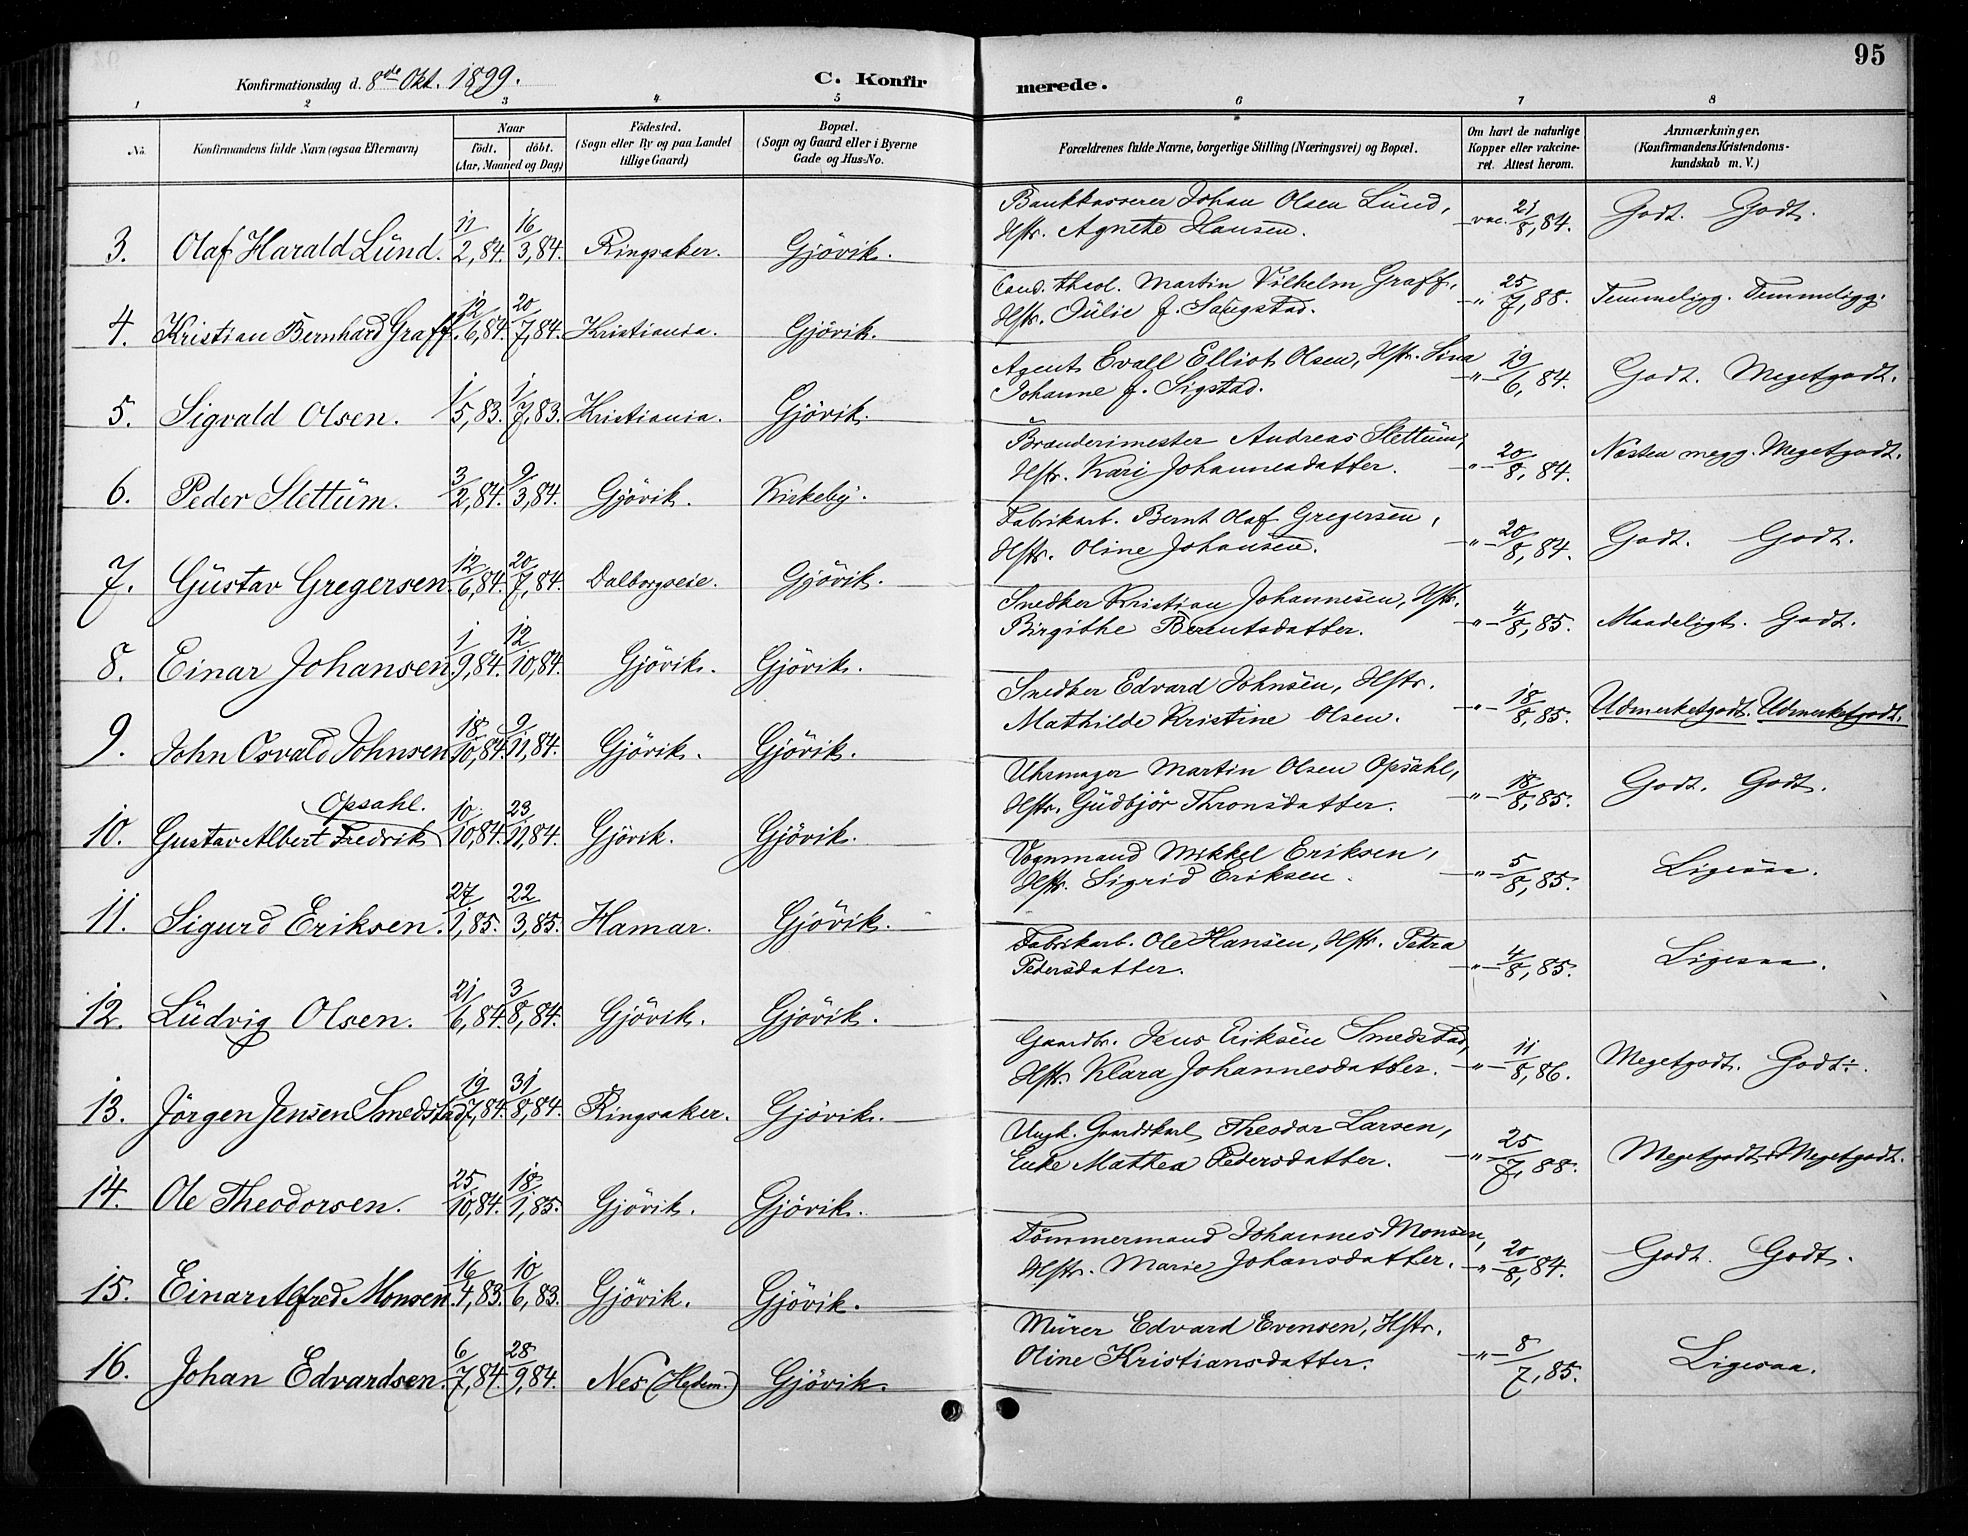 95
Konfirmationsdag d. 8de Okt. 1899. C. Konfirmerede.
1 2 3 4 5 6 7 8
No. Konfirmandens fulde Navn (ogsaa Efternavn) Naar født. døbt. (Aar, Maaned og Dag) Födested. (Sogn eller By og paa Landet tillige Gaard) Bopæl. (Sogn og Gaard eller i Byerne Gade og Hus-No. Forældrenes fulde Navne, borgerlige Stilling (Næringsvei) og Bopæl. Om havt de naturlige Kopper eller vakcineret. Attest herom. Anmærkninger. (Konfirmandens Kristendomskundskab m. V.)
3. Olaf Harald Lünd. 11/2,84. 16/3,84. Ringsaker. Gjövik. Bankkasserer Johan Olsen Lünd, Hstr. Agnete Hansen. vac. 21/8,84. Godt. Godt.
4. Kristian Bernhard Graff. 12/6,84. 20/7,84. Kristiania. Gjövik. Cand. theol. Martin Vilhelm Graff, Hstr. Jülie f. Saugstad. -"- 25/7,88. Temmeligg. Temmeligg.
5. Sigvald Olsen. 1/5,83. 1/7,83. Kristiania. Gjövik. Agent Evall Elliot Olsen, Hstr. Lina Johanne f. Sigstad. -"- 19/6,84. Godt. Megetgodt.
6. Peder Slettüm. 3/2,84. 9/3,84. Gjövik. Kirkeby. Brænderimester Andreas Slettüm, Hstr. Kari Johannesdatter. -"- 20/8,84. Næsten megg. Megetgodt.
7. Güstav Gregersen. 12/6,84. 20/7,84. Dalborgseie. Gjövik. Fabrikarb. Bernt Olaf Gregersen, Hstr. Oline Johansen. -"- 20/8,84. Godt. Godt.
8. Einar Johansen. 1/9,84. 12/10,84. Gjövik. Gjövik. Snedker Kristian Johannesen, Hstr. Birgithe Berntsdatter. -"- 4/8,85. Maadeligt. Godt.
9. John Osvald Johnsen 18/10,84. 9/11,84. Gjövik. Gjövik. Snedker Edvard Johnsen, Hstr. Mathilde Kristine Olsen. -"- 18/8,85. Udmerketgodt. Udmerketgodt.
10. Gustav Albert Fredrik Opsahl. 10/10,84. 23/11,84. Gjövik. Gjövik. Uhrmager Martin Olsen Opsahl, Hstr. Güdbjör Thronsdatter. -"- 18/8,85. Godt. Godt.
11. Sigurd Eriksen. 27/1,85. 22/3,85. Hamar. Gjövik. Vognmand Mikkel Eriksen, Hstr. Sigrid Eriksen. -"- 5/8,85. Ligesaa.
12. Lüdvig Olsen. 21/6,84. 3/8,84. Gjövik. Gjövik. Fabrikarb. Ole Hansen, Hstr. Petra Pedersdatter. -"- 4/8,85. Ligesaa.
13. Jörgen Jensen Smedstad 19/7,84. 31/8,84. Ringsaker. Gjövik. Gaardbr. Jens Eriksen Smedstad, Hstr. Klara Johannesdatter. -"- 11/8,86. Megetgodt. Godt ÷.
14. Ole Theodorsen. 25/10,84. 18/1,85. Gjövik. Gjövik. Ungk. Gaardskarl Theodor Larsen, Enke Mathea Pedersdatter. -"- 25/7,88. Megetgodt. Megetgodt.
15. Einar Alfred Monsen. 16/4,83. 10/6,83. Gjövik. Gjövik. Tömmermand Johannes Monsen, Hstr. Marie Johansdatter. -"- 20/8,84. Godt. Godt.
16. Johan Edvardsen. 6/7,84. 28/9,84. Nes (Hedem.) Gjövik. Mürer Edvard Evensen, Hstr. Oline Kristiansdatter. -"- 8/7,85. Ligesaa.